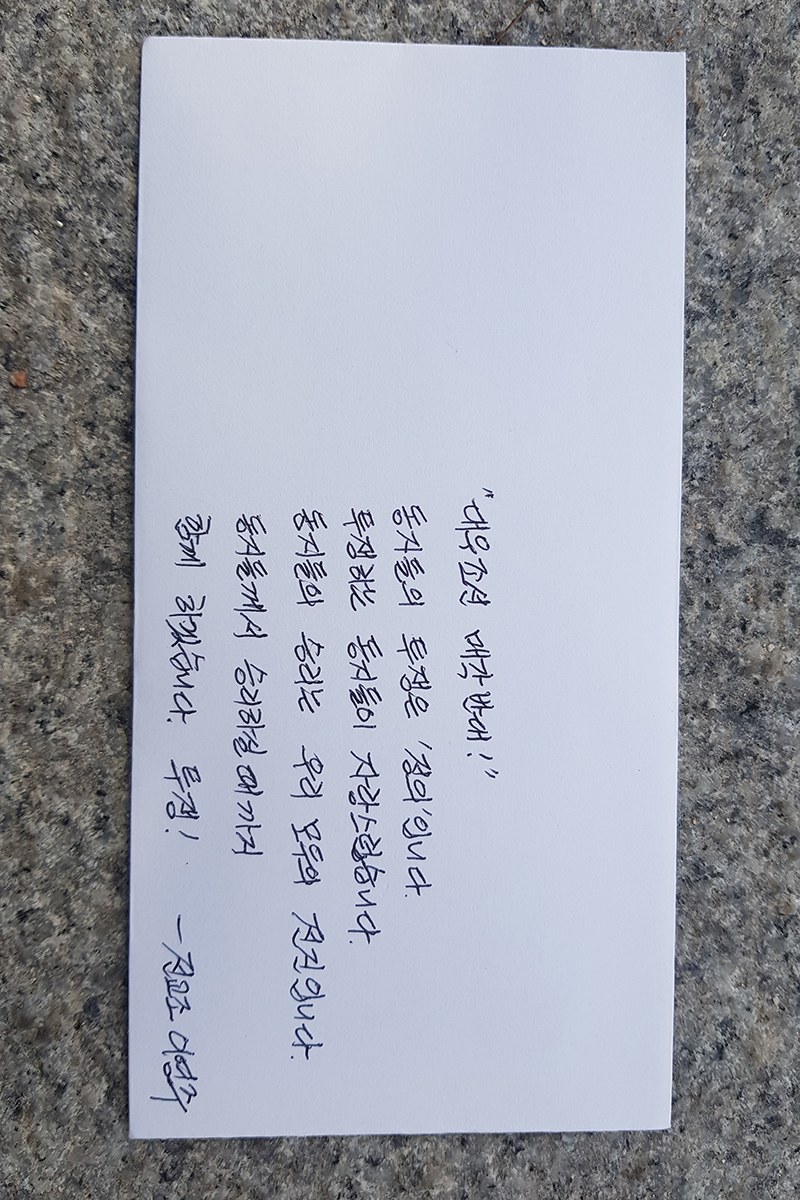 "대우조선 매각 반대!"
동지들의 투쟁은 '정의'입니다.
투쟁하는 동지들이 자랑스럽습니다.
동지들의 승리는 우리 모두의 전진입니다.
동지들께서 승리하실 때까지
함께 하겠습니다. 투쟁!
- 전교조 이영주